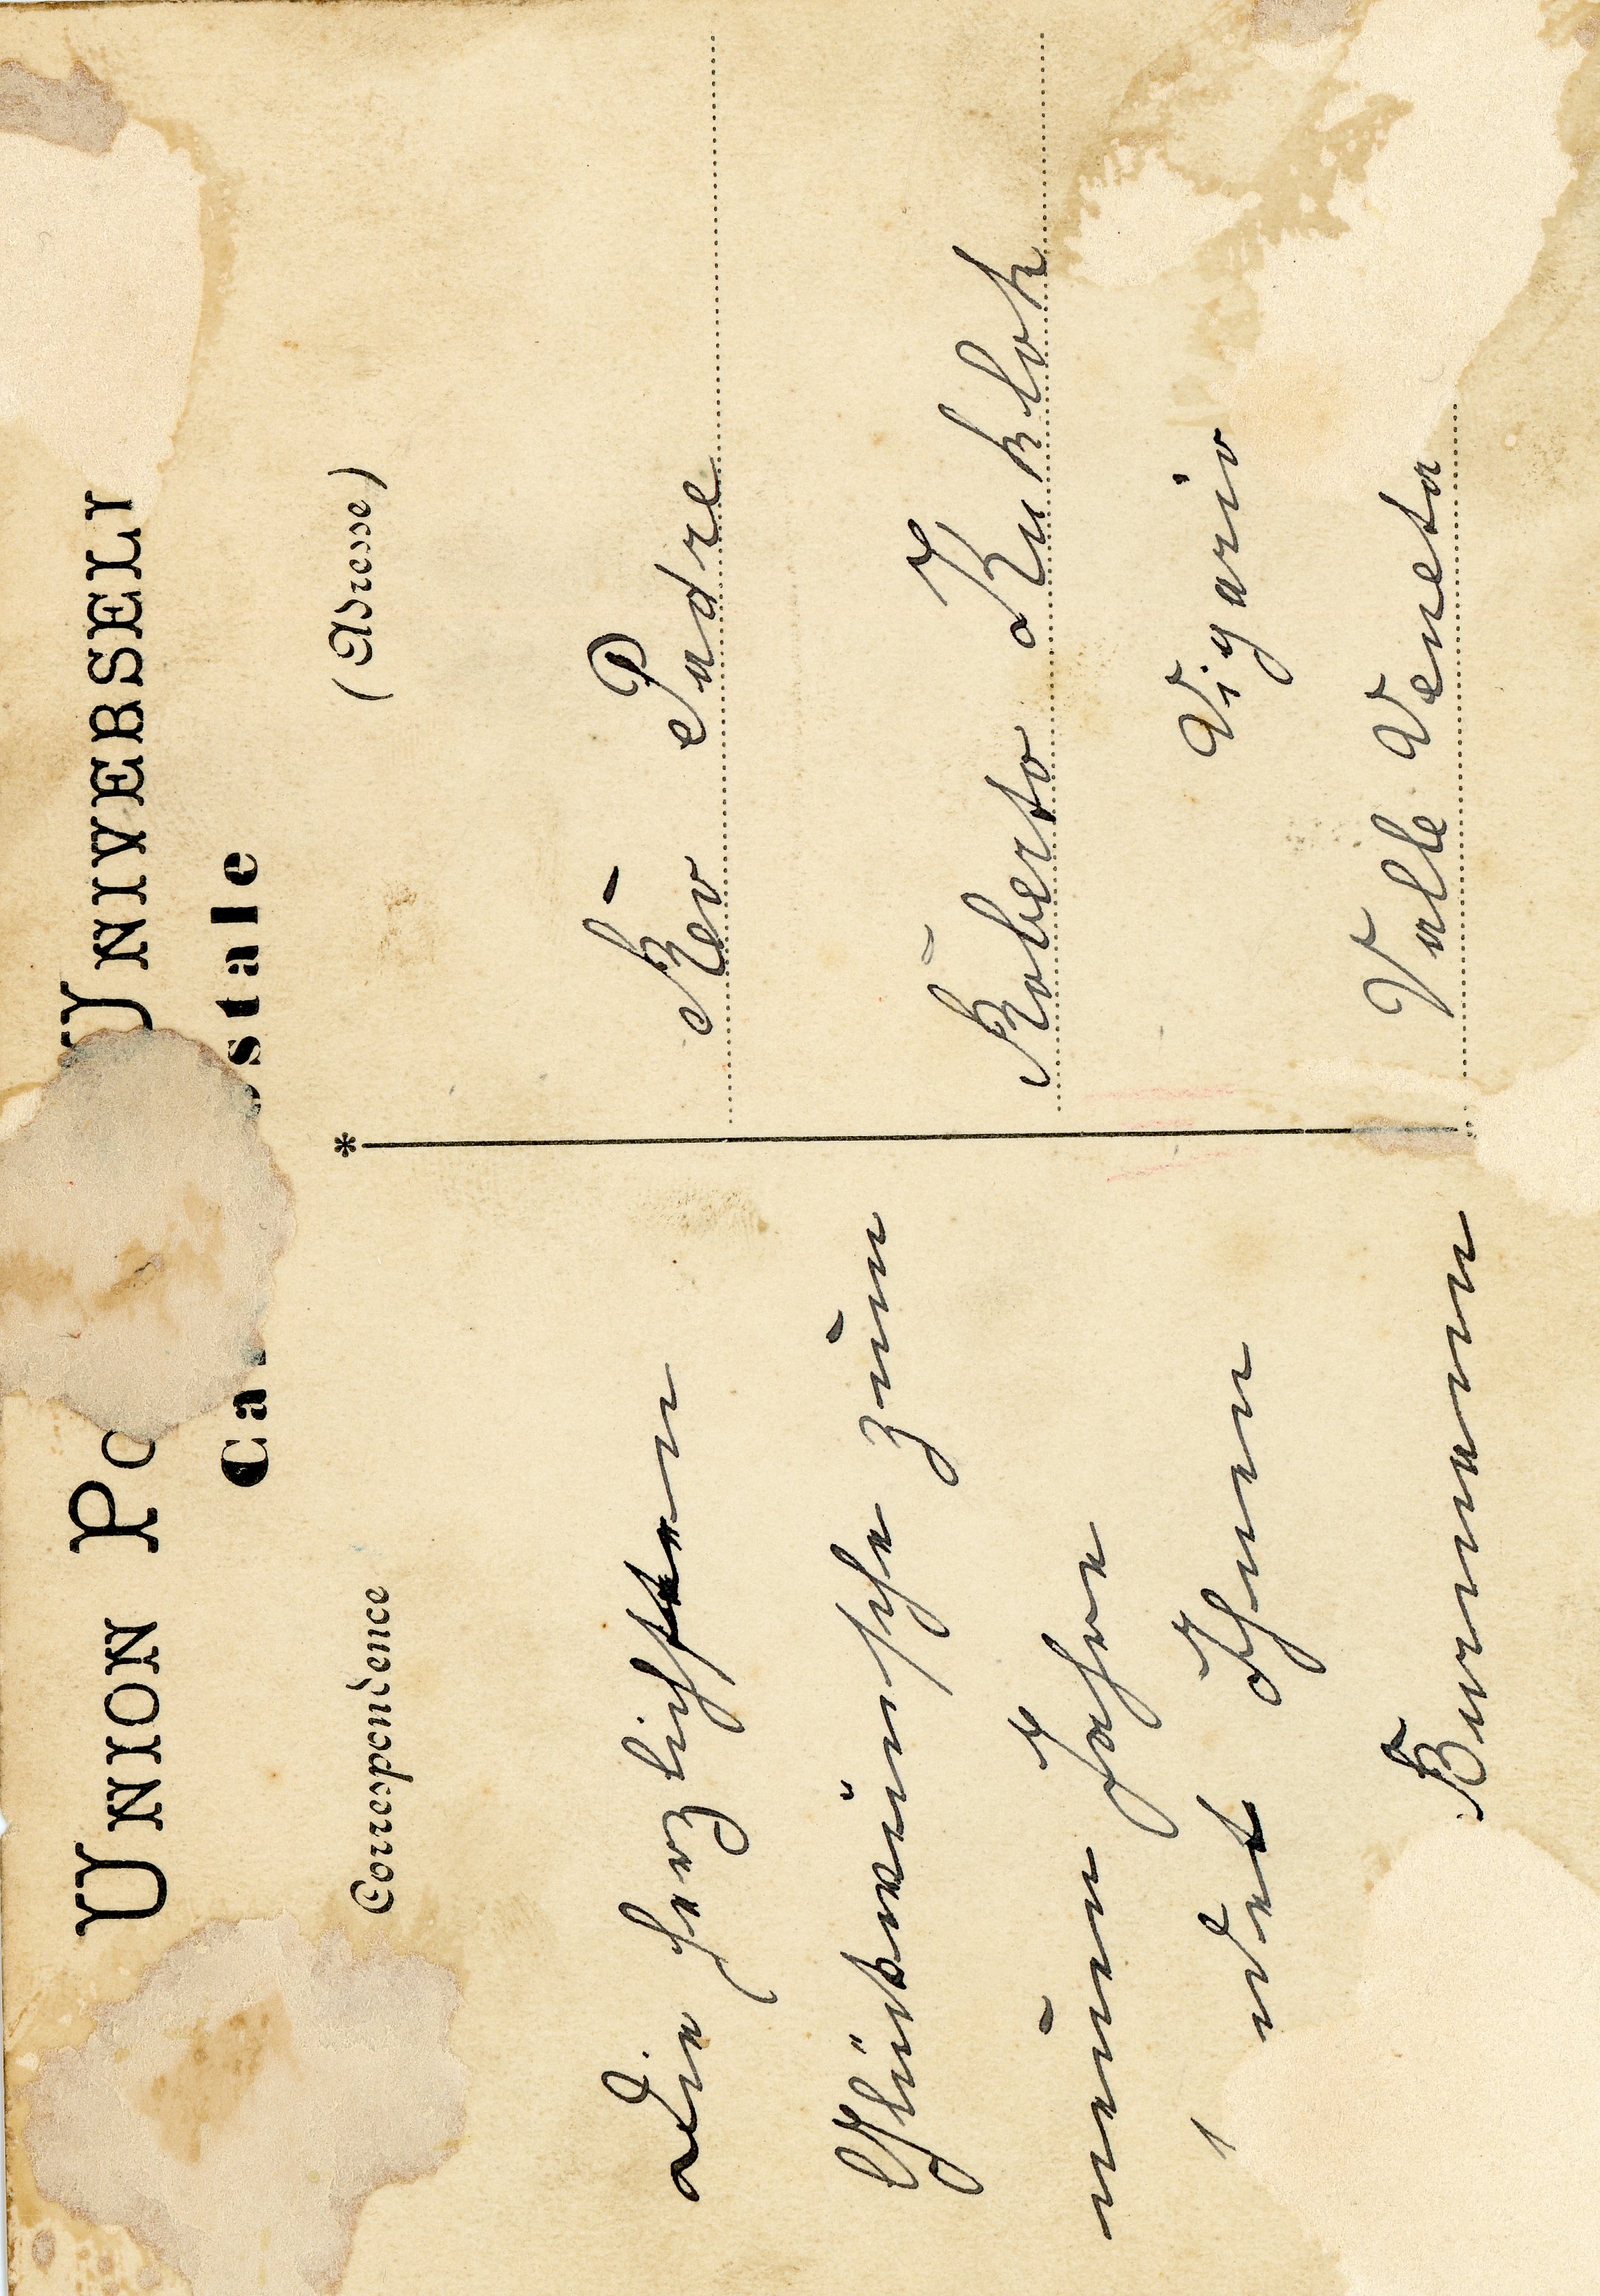 UNION PO UNIVERSELL
Ca stale
Correspondence
(Adresse)
Die herzlichsten
Glückwünsche zum
neuen Jahre
ndet Ihnen
Burmann
Rev Padre
Roberto Kukloh
Vigario
Valle Veneta